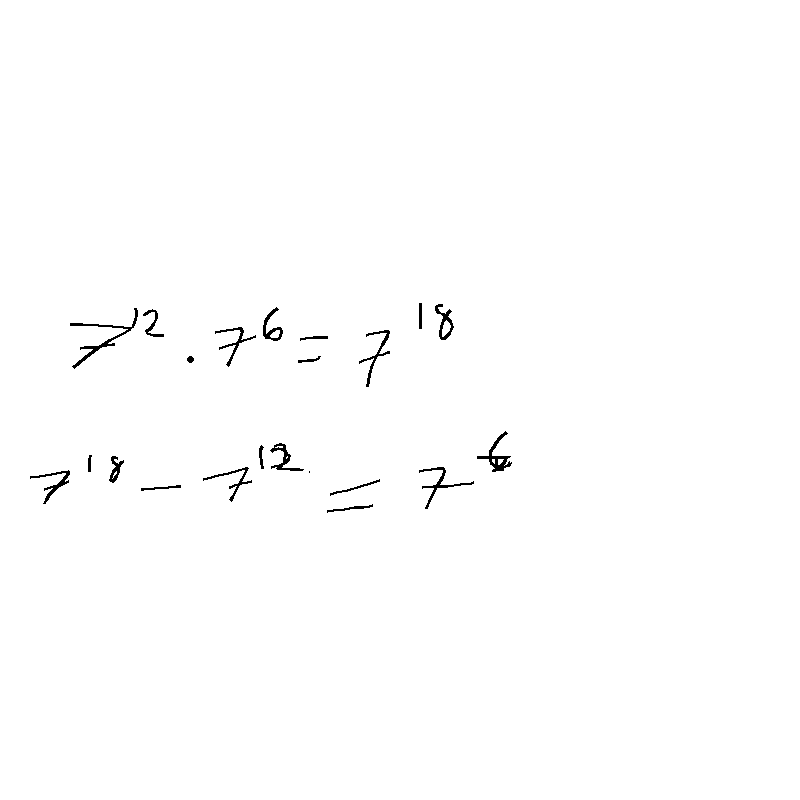 7¹² · 7⁶ = 7¹⁸
7¹⁸ - 7¹² = 7⁶